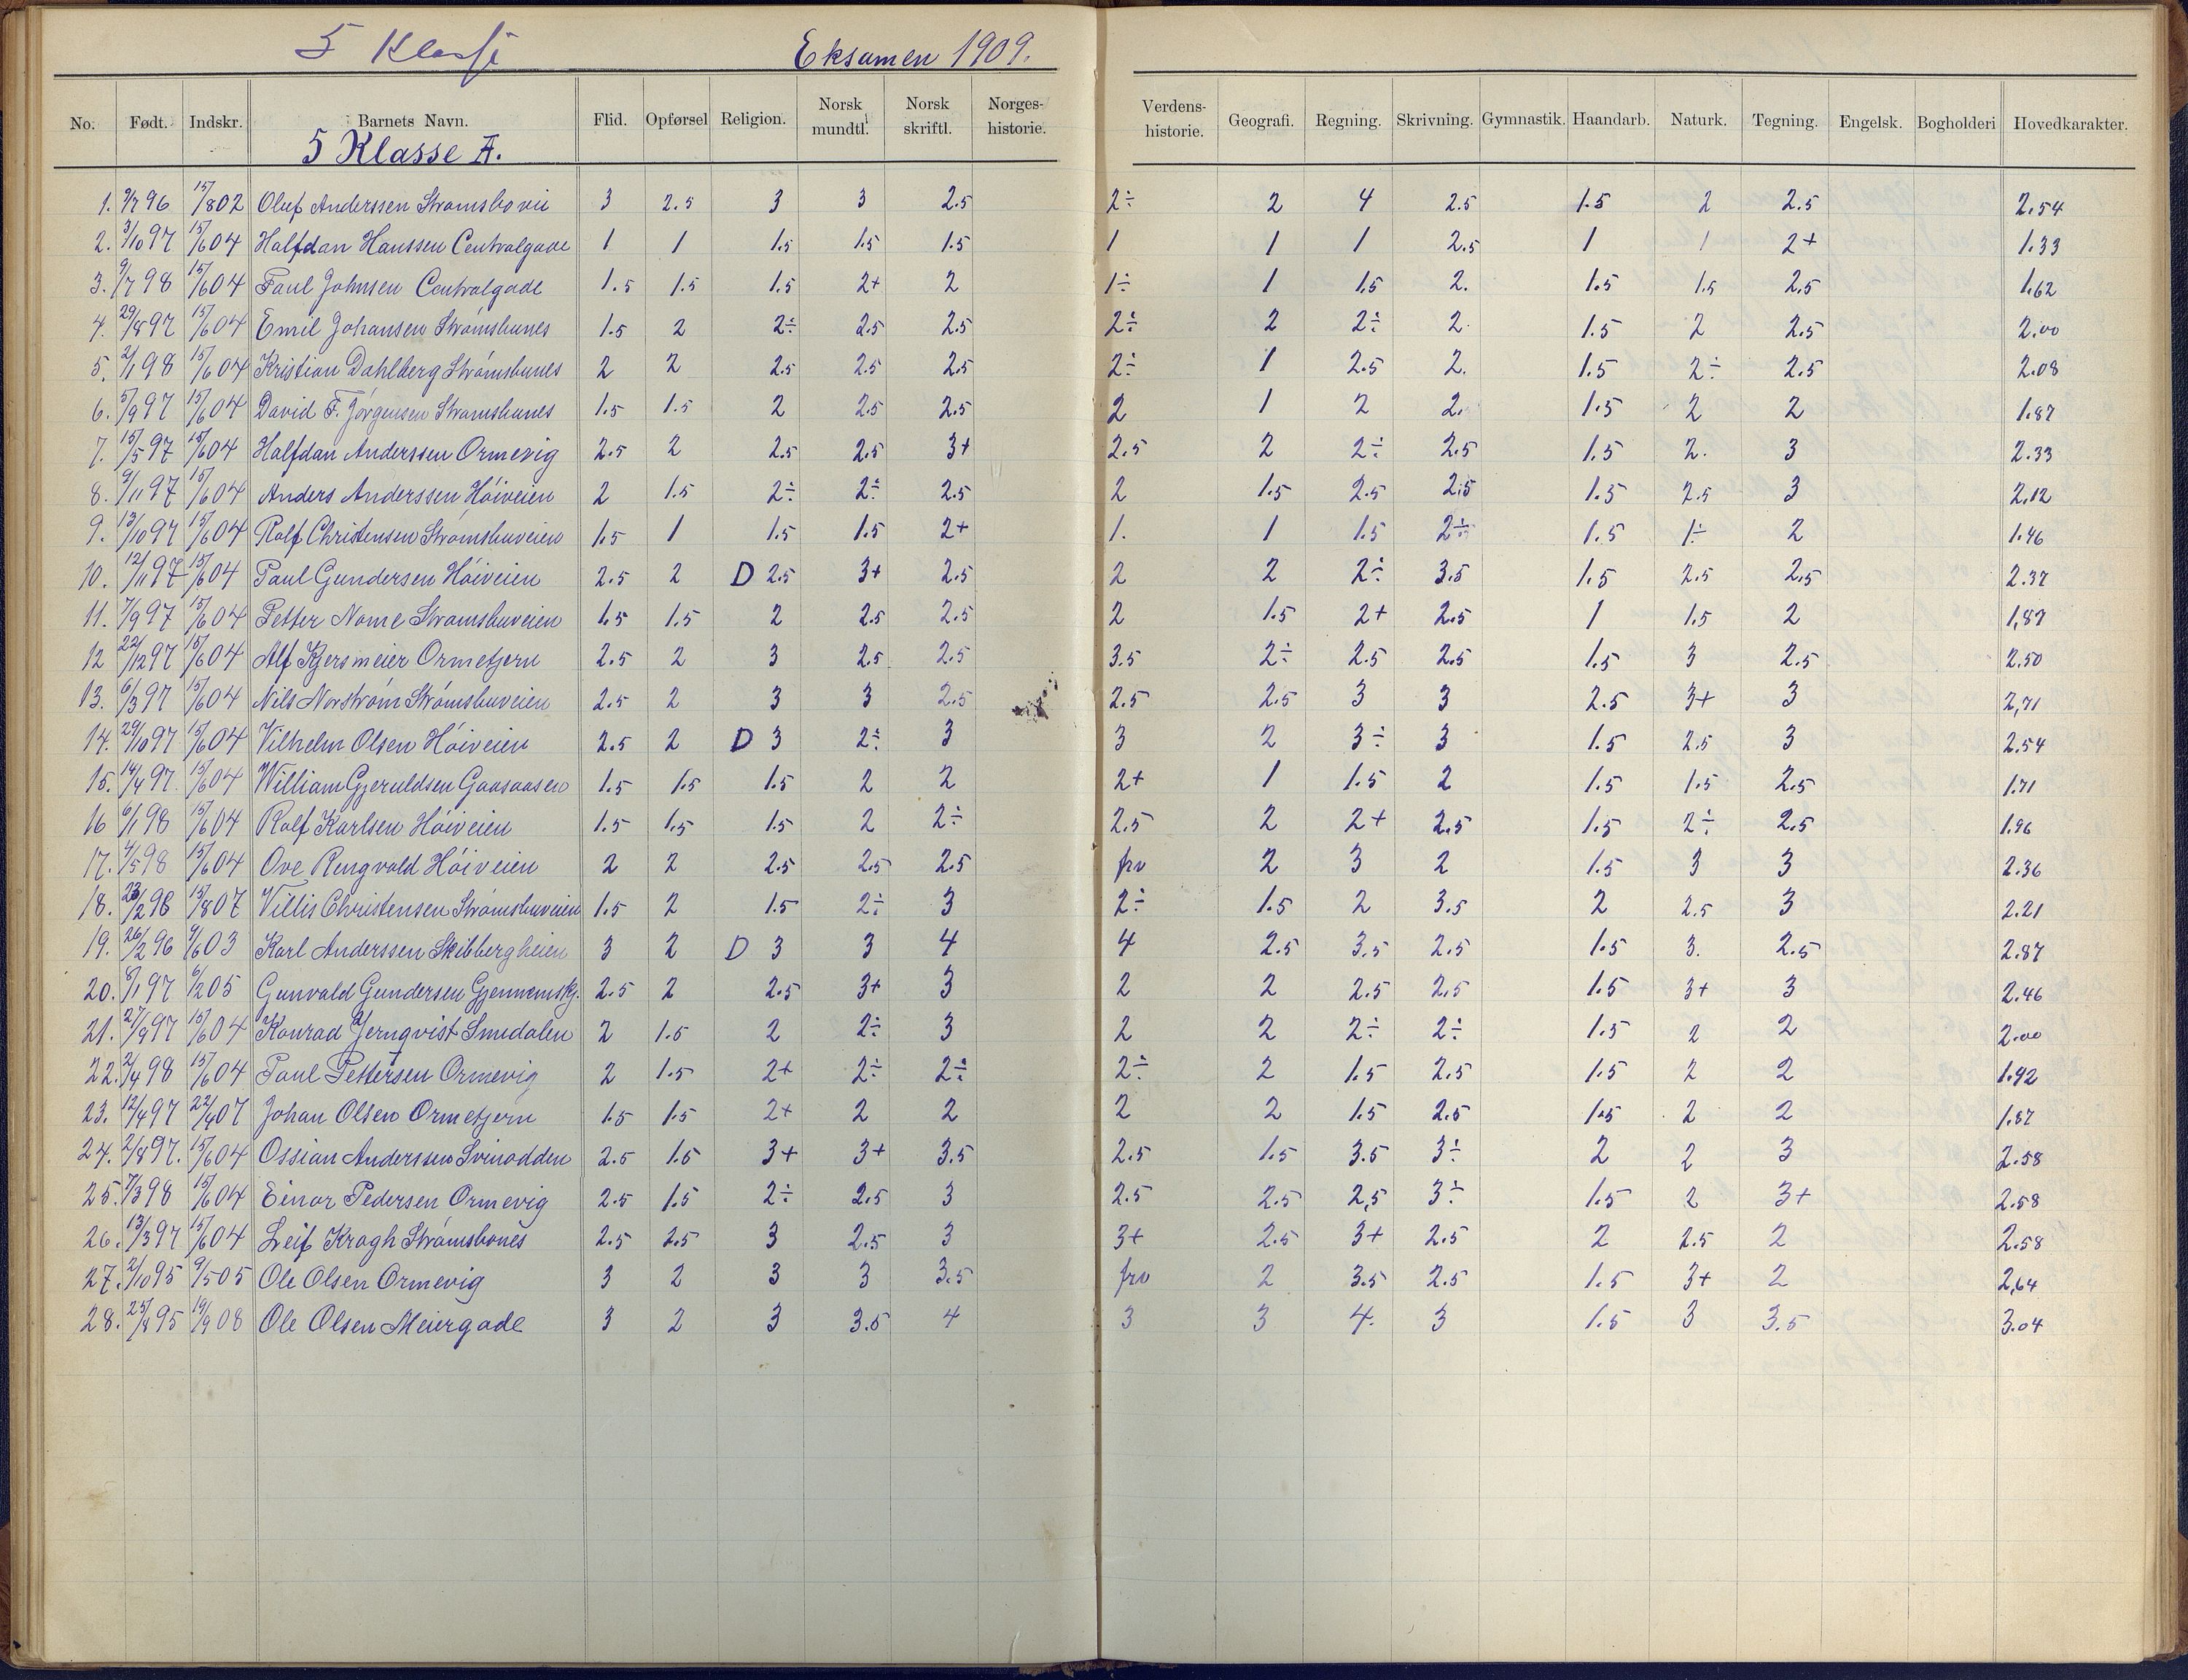 5 Klasse Eksamen 1909.
No. Født. Indskr. Barnets Navn. Flid. Opførsel Religion. Norsk mundtl. Norsk skriftl. Norges-historie. Verdens-historie. Geografi. Regning. Skrivning. Gymnastik. Haandarb. Naturk. Tegning. Engelsk. Bogholderi Hovedkarakter.
5 Klasse A.
1. 9/7 96 15/8 02 Oluf Anderssen 3 2.5 3 3 2.5 2÷ 2 4 2.5 1.5 2 2.5 2.54
2. 3/10 97 15/6 04 Halfdan Hanssen Centralgade 1 1 1.5 1.5 1.5 1 1 1 2.5 1 1 2+ 1.33
3. 9/7 98 15/6 04 Paul Johnsen Centralgade 1.5 1.5 1.5 2+ 2 1÷ 1 1.5 2. 1.5 1.5 2.5 1.62
4. 29/8 97 15/6 04 Emil Johansen Strømsbunes 1.5 2 2÷ 2.5 2.5 2÷ 2 2÷ 2. 1.5 2 2.5 2.00
5. 2/1 98 15/6 04 Kristian Dahlberg Strømsbunes 2 2 2.5 2.5 2.5 2÷ 1 2.5 2. 1.5 2÷ 2.5 2.08
6. 5/9 97 15/6 04 David F. Jørgensen Strømsbunes 1.5 1.5 2 2.5 2.5 2 1 2 2. 1.5 2 2 1.87
7. 15/5 97 15/6 04 Halfdan Anderssen Ormevig 2.5 2 2.5 2.5 3+ 2.5 2 2÷ 2.5 1.5 2. 3 2.33
8. 9/11 97 15/6 04 Anders Anderssen Høiveien 2 1.5 2÷ 2÷ 2.5 2 1.5 2.5 2.5 1.5 2.5 3 2.12
9. 13/10 97 15/6 04 Rolf Christensen Strømsbuveien 1.5 1 1.5 1.5 2+ 1. 1 1.5 2÷ 1.5 1÷ 2 1.46
10. 12/11 97 15/6 04 Paul Gundersen Høiveien 2.5 2 D 2.5 3+ 2.5 2 2 2÷ 3.5 1.5 2.5 2.5 2.37
11. 7/9 97 15/6 04 Petter Nome Strømsbuveien 1.5 1.5 2 2.5 2.5 2 1.5 2+ 2.5 1 1.5 2 1,87
12 22/12 97 15/6 04 Alf Kjersmeier Ormetjern 2.5 2 3 2.5 2.5 3.5 2÷ 2.5 2.5 1.5 3 2.5 2.50
13. 6/3 97 15/6 04 Nils Norstrøm Strømsbuveien 2.5 2 3 3 2.5 2.5 2.5 3 3 2.5 3+ 3 2,71
14. 29/10 97 15/6 04 Vilhelm Olsen Høiveien 2.5 2 D 3 2÷ 3 3 2 3÷ 3 1.5 2.5 3 2.54
15. 14/4 97. 15/6 04 William Gjeruldsen Gaasaasen 1.5 1.5 1.5 2 2 2+ 1 1.5 2 1.5 1.5 2.5 1.71
16 6/1 98 15/6 04 Rolf Karlsen Høiveien 1.5 1.5 1.5 2 2÷ 2.5 2 2+ 2.5 1.5 2÷ 2.5 1.96
17. 4/5 98 15/6 04 Ove Rengvald Høiveien 2 2 2.5 2.5 2.5 frv 2 3 2 1.5 3 3 2.36
18. 23/2 98 15/8 07 Villis Christensen Strømsbuveien 1.5 2 1.5 2÷ 3 2÷ 1.5 2 3.5 2 2.5 3 2.21
19. 26/2 96 9/6 03 Karl Anderssen Skibbergheien 3 2 D 3 3 4 4 2.5 3.5 2.5 1.5 3. 2.5 2.87
20. 8/1 97 6/2 05 Gunvald Gundersen Gjennemskj. 2.5 2 2.5 3+ 3 2 2 2.5 2.5 1.5 3+ 3 2.46
21. 27/9 97 15/6 04 Konrad Jernqvist Smedalen 2 1.5 2 2÷ 3 2 2 2÷ 2÷ 1.5 2 2 2.00
22. 2/4 98 15/6 04 Paul Pettersen Ormevig 2 1.5 2+ 2÷ 2÷ 2÷ 2 1.5 2.5 1.5 2 2 1.92
23. 12/4 97 22/4 07 Johan Olsen Ormetjern 1.5 1.5 2+ 2 2 2 2 1.5 2.5 1.5 2 2 1.87
24. 2/8 97. 15/6 04 Ossian Anderssen Svinodden 2.5 1.5 3+ 3+ 3.5 2.5 1.5 3.5 3÷ 2 2 3 2.58
25. 7/3 98 15/6 04 Einar Pedersen Ormevig 2.5 1.5 2÷ 2.5 3 2.5 2.5 2,5 3÷ 1.5 2 3+ 2.58
26. 13/3 97 15/6 04 Leif Kragh Strømsbones 2.5 2.5 3 2.5 3 3+ 2.5 3+ 2.5 2 2.5 2 2.58
27. 2/10 95 9/5 05 Ole Olsen Ormevig 3 2 3 3 3.5 frv 2 3.5 2.5 1.5 3+ 2 2,64
28. 25/8 95 19/9 08 Ole Olsen Meiergade 3 2 3 3.5 4 3 3 4. 3 1.5 3 3.5 3.04